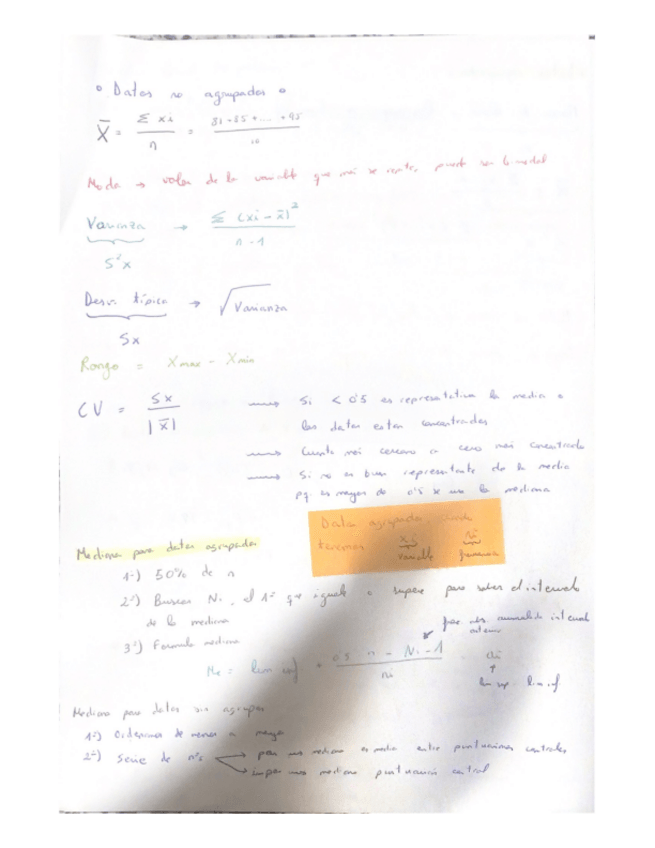 ° Datos no agrupados °
X̄ = Σ xi / n = 81 + 85 + ... + 95 / 10
Moda → valor de la variable que más se repite, puede ser bimodal
Varianza → Σ (xi - x̄)² / n - 1
S²x
Desv. típica → √Varianza
Sx
Rango = Xmax - Xmin
CV = Sx / |X̄|
Si < 0'5 es representativa la media o
los datos estan concentrados
Cuanto más cercano a cero más concentrado
Si no es buen representante de la media
pq es mayor de 0'5 se usa la mediana
Datos agrupados cuando
tenemos xi ni
variable frecuencia
Mediana para datos agrupados
1º) 50% de n
2º) Buscar Ni, el 1º que iguale o supere para saber el intervalo
de la mediana
3º) Formula mediana
frec. abs. acumulada intervalo
anterior
Me = lim inf + 0'5 n - Ni - 1 / ni · ai
lim sup - lim inf
Mediana para datos sin agrupar
1º) Ordenamos de menor a mayor
2º) Serie de nºs → par mediana es media entre puntuaciones centrales
→ impar mediana puntuación central